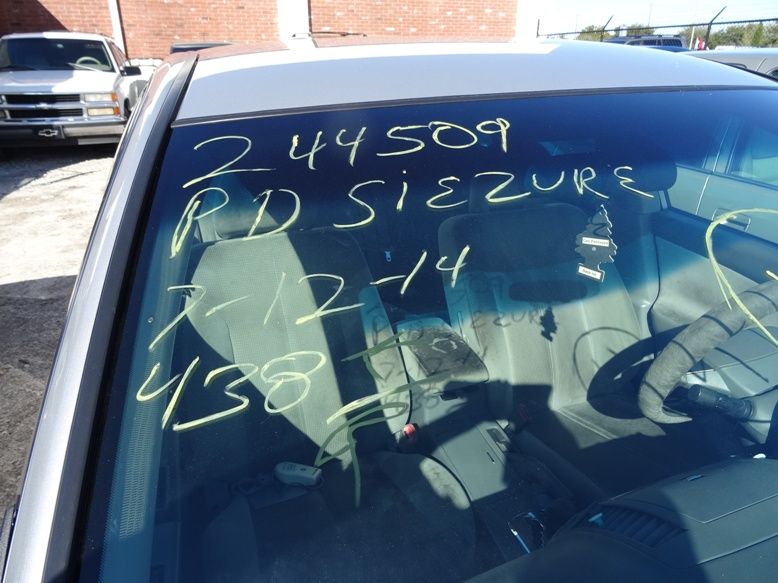 244509
PD SIEZURE
7-12-14
438